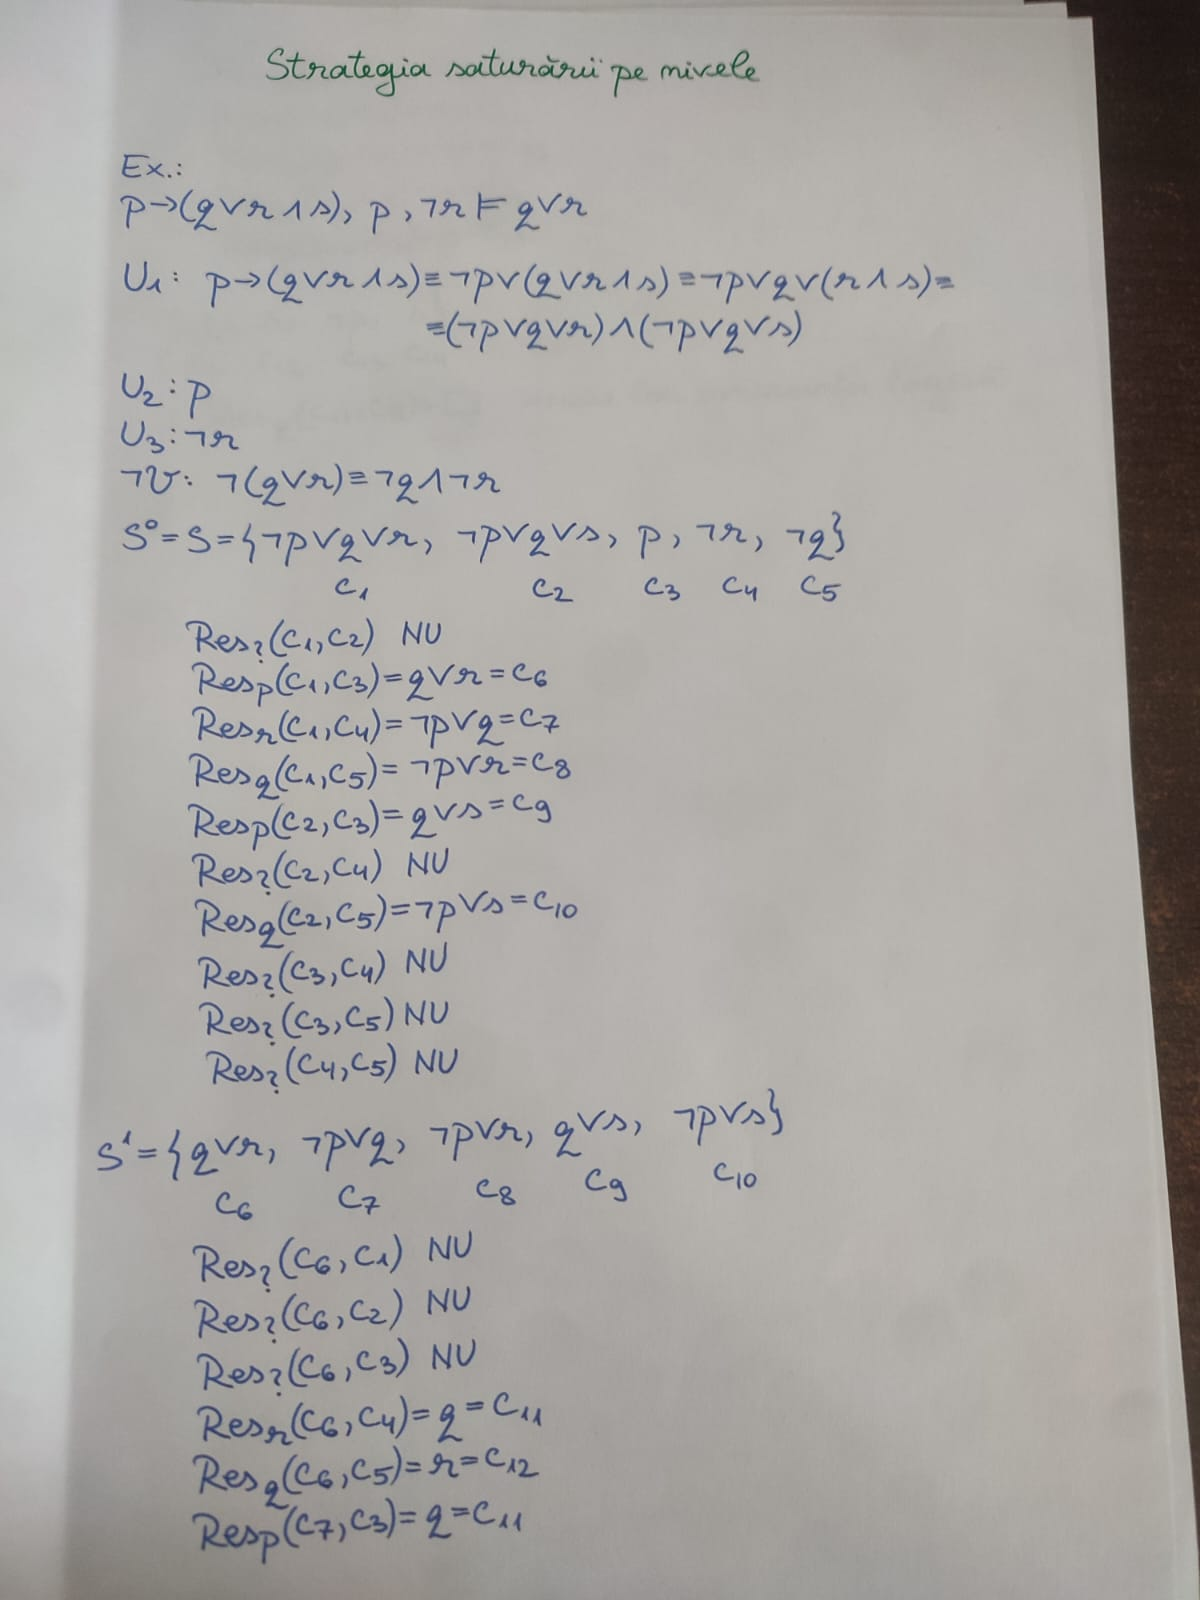 Strategia saturării pe nivele
Ex.:
p→(q∨r∧s), p, ¬r ⊨ q∨r
U₁: p→(q∨r∧s)≡¬p∨(q∨r∧s)≡¬p∨q∨(r∧s)≡
≡(¬p∨q∨r)∧(¬p∨q∨s)
U₂: p
U₃: ¬r
¬V: ¬(q∨r)≡¬q∧¬r
S⁰=S={¬p∨q∨r, ¬p∨q∨s, p, ¬r, ¬q}
C₁ C₂ C₃ C₄ C₅
Res?(C₁,C₂) NU
Resp(C₁,C₃)=q∨r=C₆
Resr(C₁,C₄)=¬p∨q=C₇
Resq(C₁,C₅)=¬p∨r=C₈
Resp(C₂,C₃)=q∨s=C₉
Res?(C₂,C₄) NU
Resq(C₂,C₅)=¬p∨s=C₁₀
Res?(C₃,C₄) NU
Res?(C₃,C₅) NU
Res?(C₄,C₅) NU
S¹={q∨r, ¬p∨q, ¬p∨r, q∨s, ¬p∨s}
C₆ C₇ C₈ C₉ C₁₀
Res?(C₆,C₁) NU
Res?(C₆,C₂) NU
Res?(C₆,C₃) NU
Resr(C₆,C₄)=q=C₁₁
Resq(C₆,C₅)=r=C₁₂
Resp(C₇,C₃)=q=C₁₁